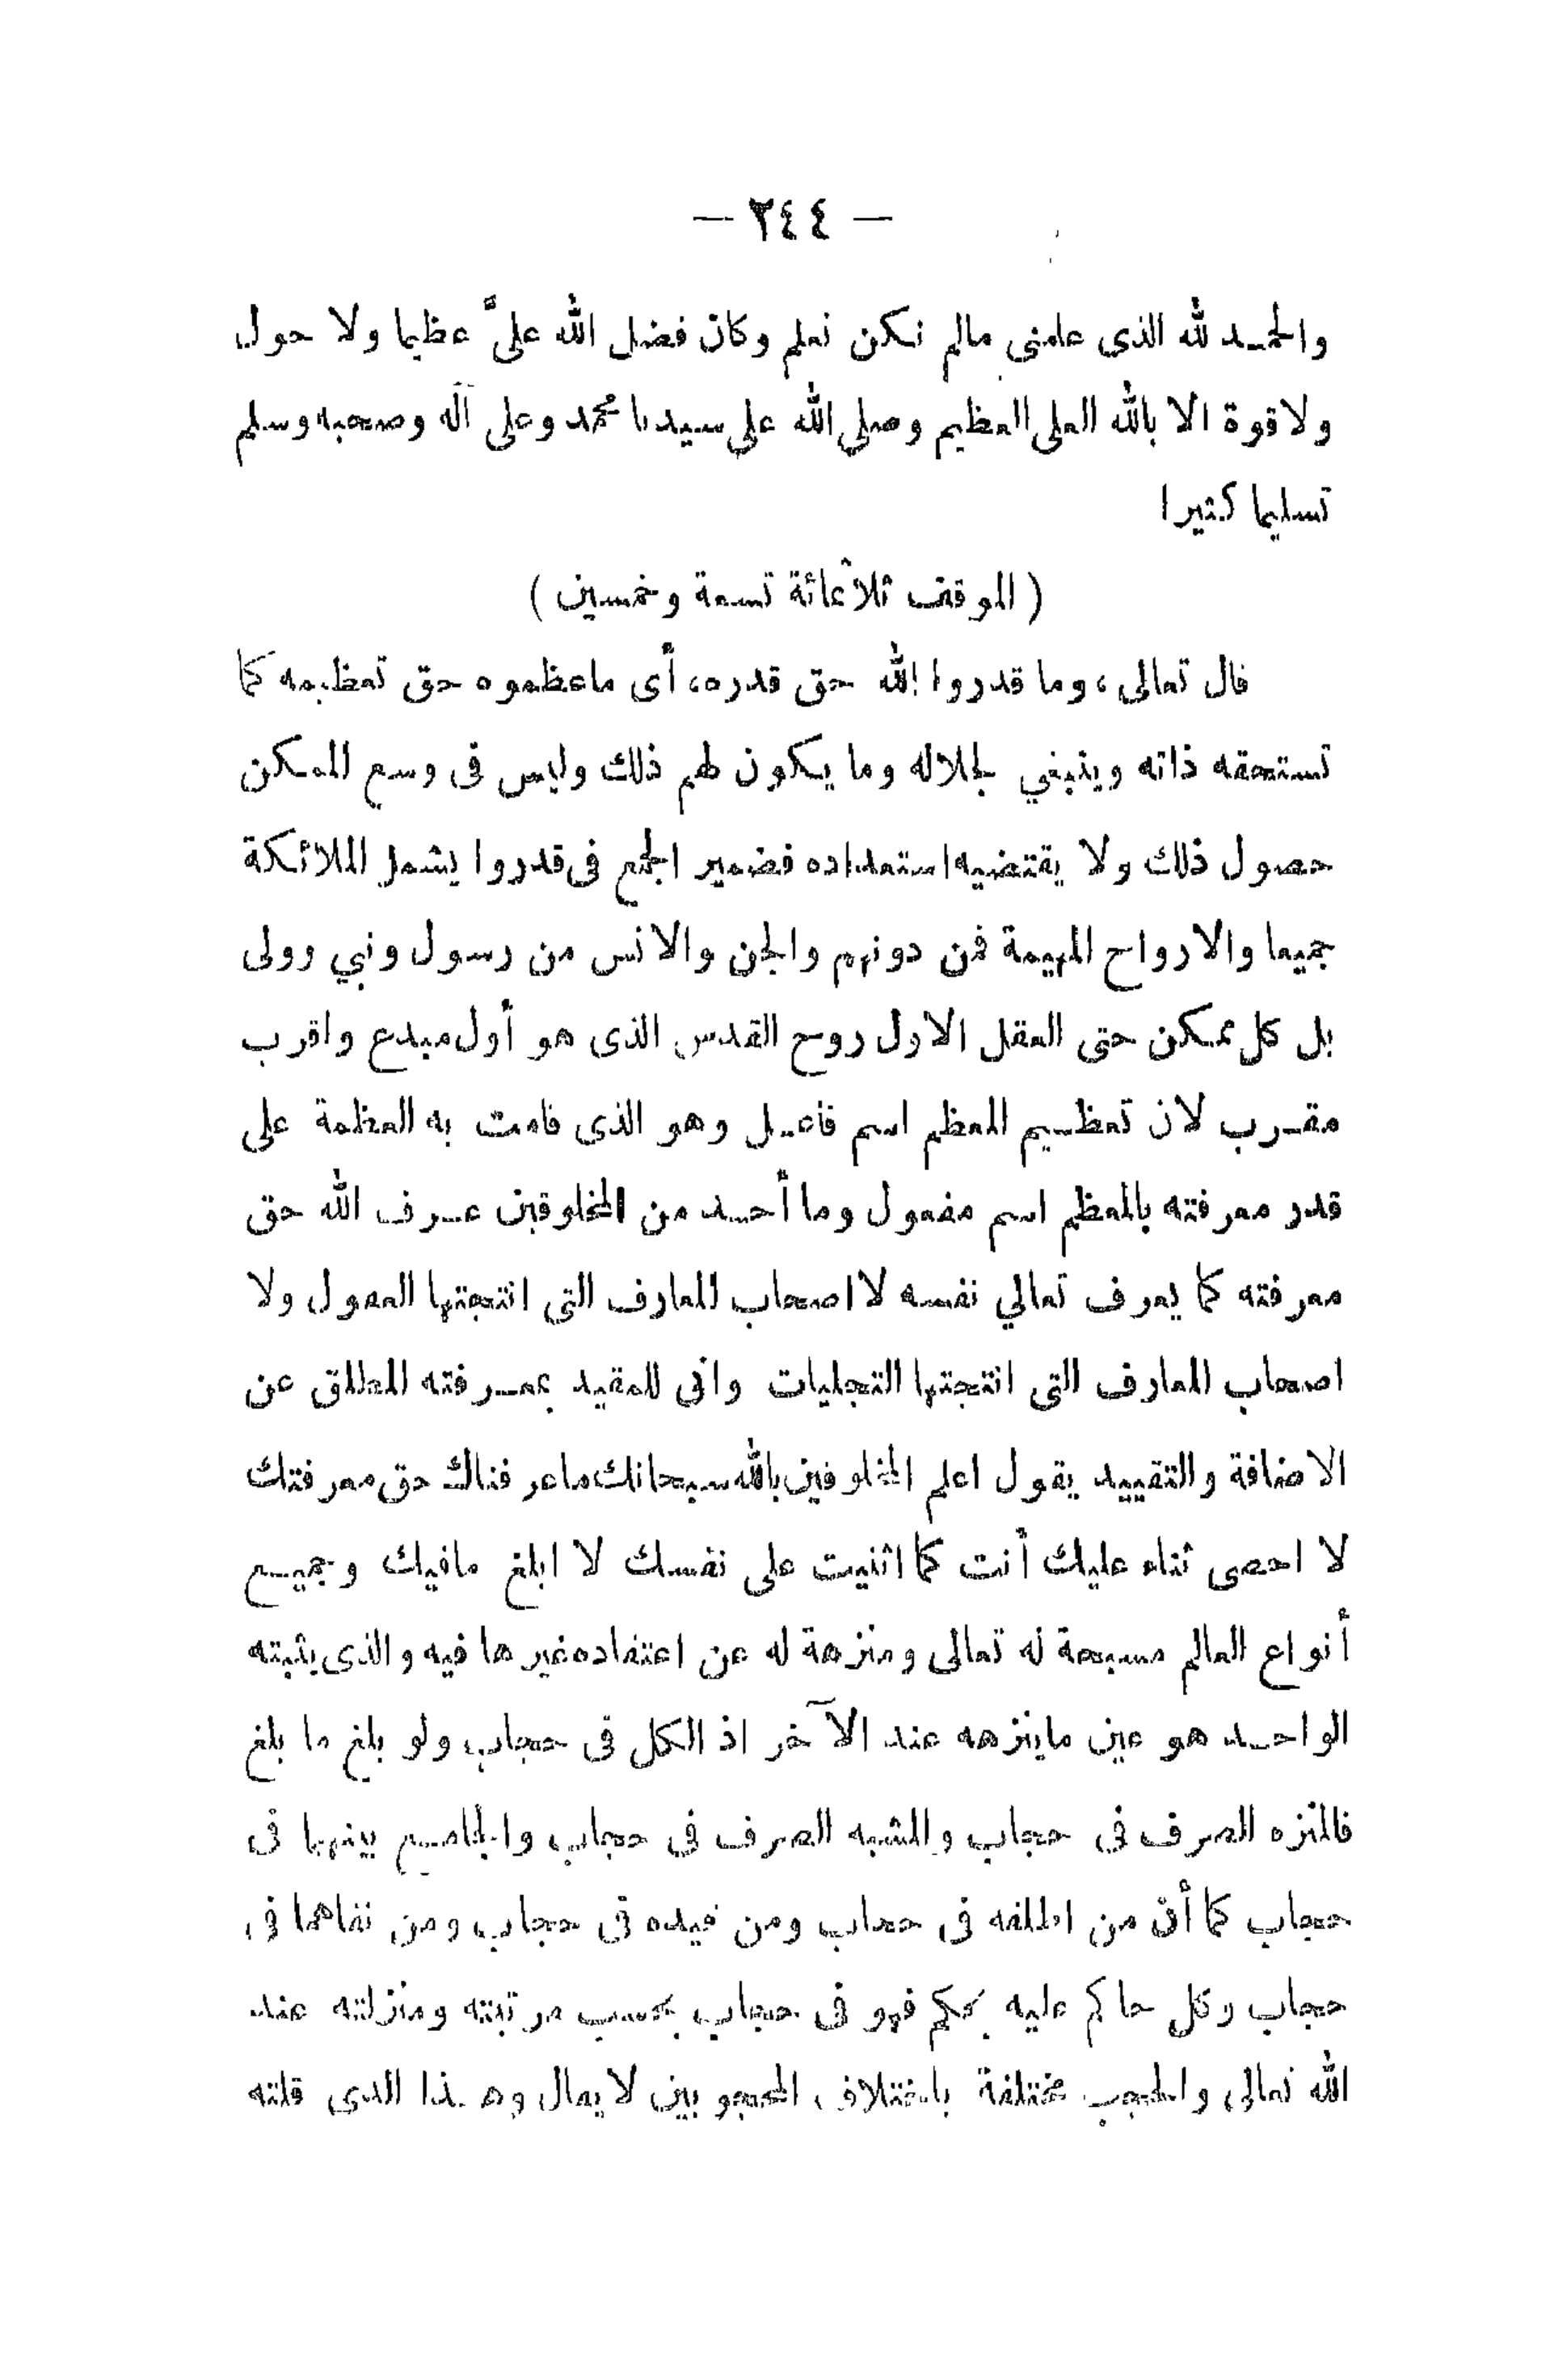 — ٢٤٤ —
والحمد لله الذى علمنى مالم نكن نعلم وكان فضل الله علىَّ عظيما ولا حول
ولا قوة الا بالله العلى العظيم وصلى الله على سيدنا محمد وعلى آله وصحبه وسلم
تسليما كثيرا
( الموقف ثلاثمائة تسعة وخمسين )
قال تعالى ، وما قدروا الله حق قدره ، أى ماعظموه حق تعظيمه كما
تستحقه ذاته وينبغي لجلاله وما يكون لهم ذلك وليس فى وسع الممكن
حصول ذلك ولا يقتضيه استعداده فضمير الجمع فى قدروا يشمل الملائكة
جميعا والارواح المهيمة فمن دونهم والجن والانس من رسول ونبي وولى
بل كل ممكن حتى العقل الاول روح القدس الذى هو أول مبدع واقرب
مقرب لان تعظيم المعظم اسم فاعل وهو الذى قامت به العظمة على
قدر معرفته بالمعظم اسم مفعول وما أحد من المخلوقين عرف الله حق
معرفته كما يعرف تعالي نفسه لا اصحاب المعارف التى انتجتها العقول ولا
اصحاب المعارف التى انتجتها التجليات وانى للمقيد بمعرفته المطلق عن
الاضافة والتقييد يقول اعلم المخلوقين بالله سبحانك ماعرفناك حق معرفتك
لا احصى ثناء عليك أنت كما اثنيت على نفسك لا ابلغ مافيك وجميع
أنواع العالم مسبحة له تعالى ومنزهة له عن اعتقاده غيرها فيه والذى يثبته
الواحد هو عين ماينزهه عند الآخر اذ الكل فى حجاب ولو بلغ ما بلغ
فالمنزه الصرف فى حجاب والمشبه الصرف فى حجاب والجامع بينهما فى
حجاب كما أن من اطلقه فى حجاب ومن قيده فى حجاب ومن نفاهما فى
حجاب وكل حاكم عليه بحكم فهو فى حجاب بحسب مرتبته ومنزلته عند
الله تعالى والحجب مختلفة باختلاف المحجوبين لايقال وهذا الذى قلته